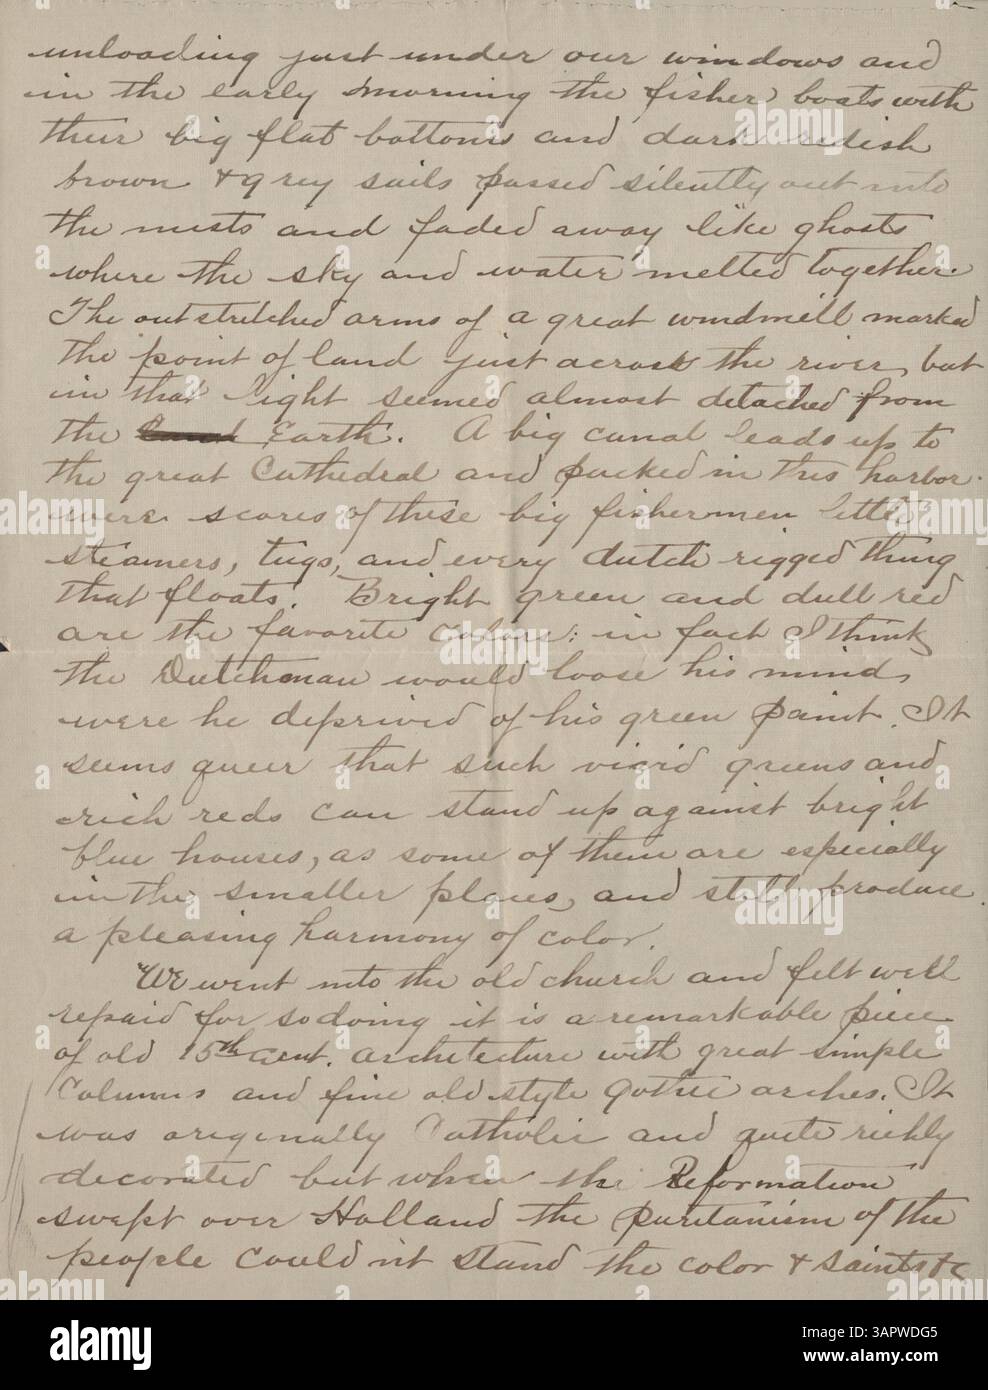 unloading just under our windows and
in the early morning the fisher boats with
their big flat bottoms and dark redish
brown & grey sails passed silently out into
the mists and faded away like ghosts
where the sky and water melted together.
The outstretched arms of a great windmill marked
the point of land just across the river, but
in that light seemed almost detached from
the Earth. A big canal leads up to
the great Cathedral and packed in this harbor
were scores of these big fishermen little
steamers, tugs, and every dutch rigged thing
that floats. Bright green and dull red
are the favorite colors: in fact I think
the Dutchman would loose his mind
were he deprived of his green paint. It
seems queer that such vivid greens and
rich reds can stand up against bright
blue houses, as some of them are especially
in the smaller places, and still produce
a pleasing harmony of color.
We went into the old church and felt well
repaid for so doing it is a remarkable piece
of old 15th Cent. architecture with great simple
Columns and fine old style gothic arches. It
was originally Catholic and quite richly
decorated but when the Reformation
swept over Holland the puritanism of the
people could n't stand the color & saints &c
alamy
Image ID: 3APWDG5
www.alamy.com